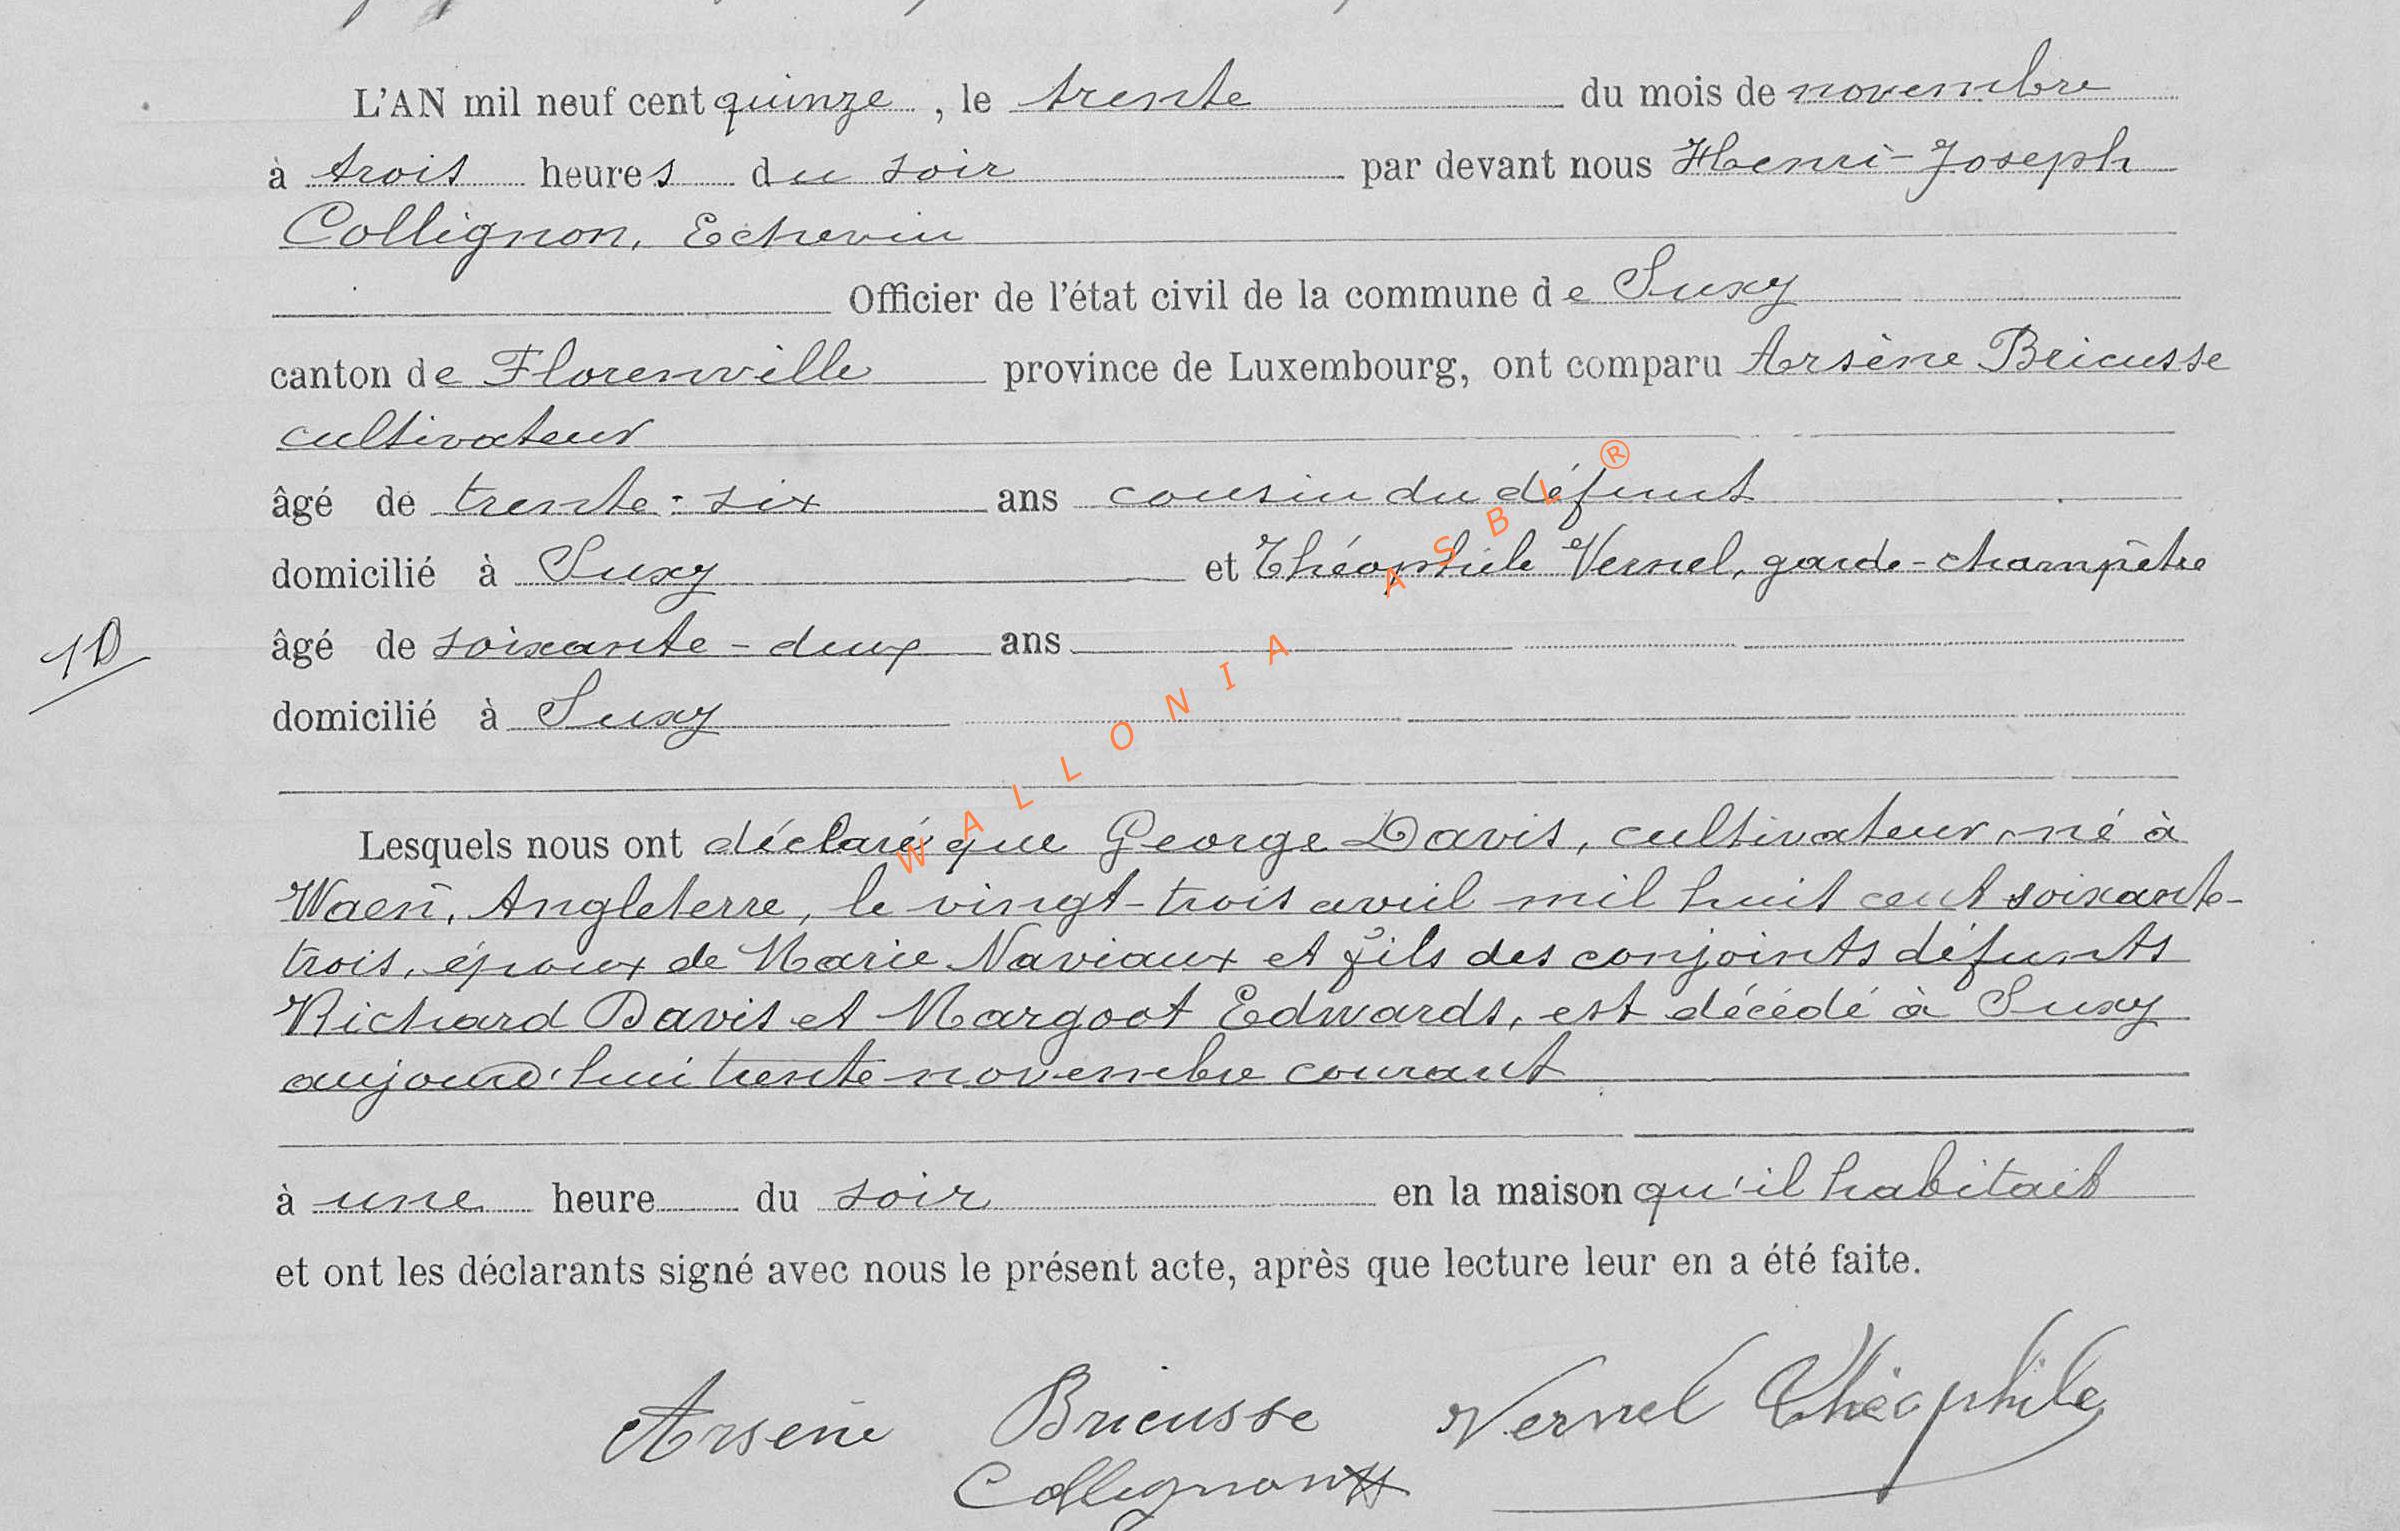 L'AN mil neuf cent quinze, le trente du mois de novembre
à trois heures du soir par devant nous Henri-Joseph
Collignon, Echevin
Officier de l'état civil de la commune de Suxy
canton de Florenville province de Luxembourg, ont comparu Arsène Bricusse
cultivateur
âgé de trente-six ans cousin du défunt
domicilié à Suxy et Théophile Vernel, garde-champêtre
âgé de soixante-deux ans
1D
domicilié à Suxy
WALLONIA ASBL ®
Lesquels nous ont déclaré que George Davis, cultivateur, né à
Waen, Angleterre, le vingt-trois avril mil huit cent soixante-
trois, époux de Marie Naviaux et fils des conjoints défunts
Richard Davis et Margoot Edwards, est décédé à Suxy
aujourd'hui trente novembre courant
à une heure du soir en la maison qu'il habitait
et ont les déclarants signé avec nous le présent acte, après que lecture leur en a été faite.
Arsène Bricusse Vernel Théophile
Collignon